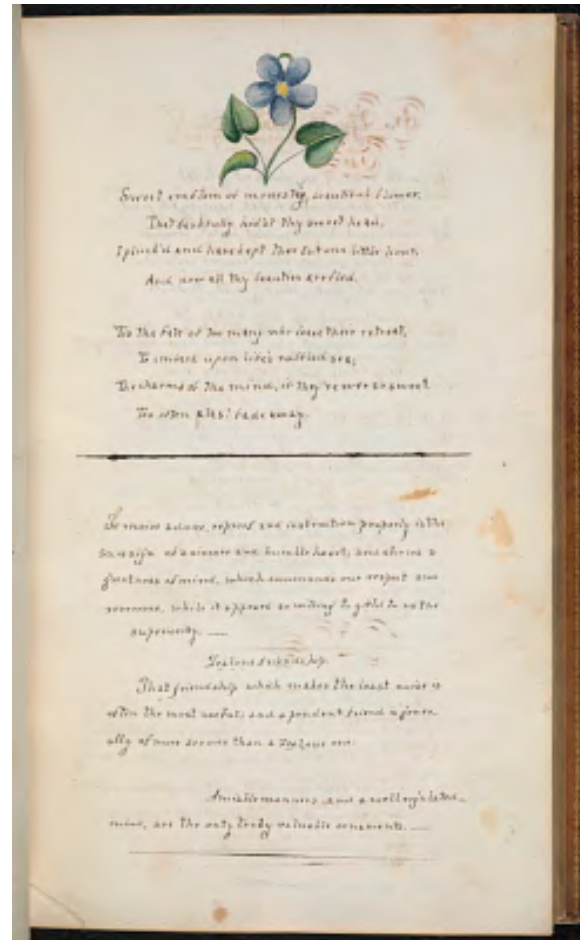 Sweet emblem of modesty, beautiful flower,
That bashfully hid'st thy sweet head,
I pluck'd and have kept thee but one little hour,
And now all thy beauties are fled.
'Tis the fate of too many who leave their retreat,
To embark upon life's
The charms of the mind, if they're ever so sweet
Too often alas! fade away.
To receive advice, reproof and instruction properly is the
sign of a sincere and humble heart, and shews a
greatness of mind, which commands our respect and
reverence, while it appears so willing to yield to us the
superiority.
Zealous Friendship.
That friendship which makes the least noise is
often the most useful; and a prudent friend is gener
ally of more service than a zealous one.
Amiable manners, and a well regulated
mind, are the only truly valuable ornaments.